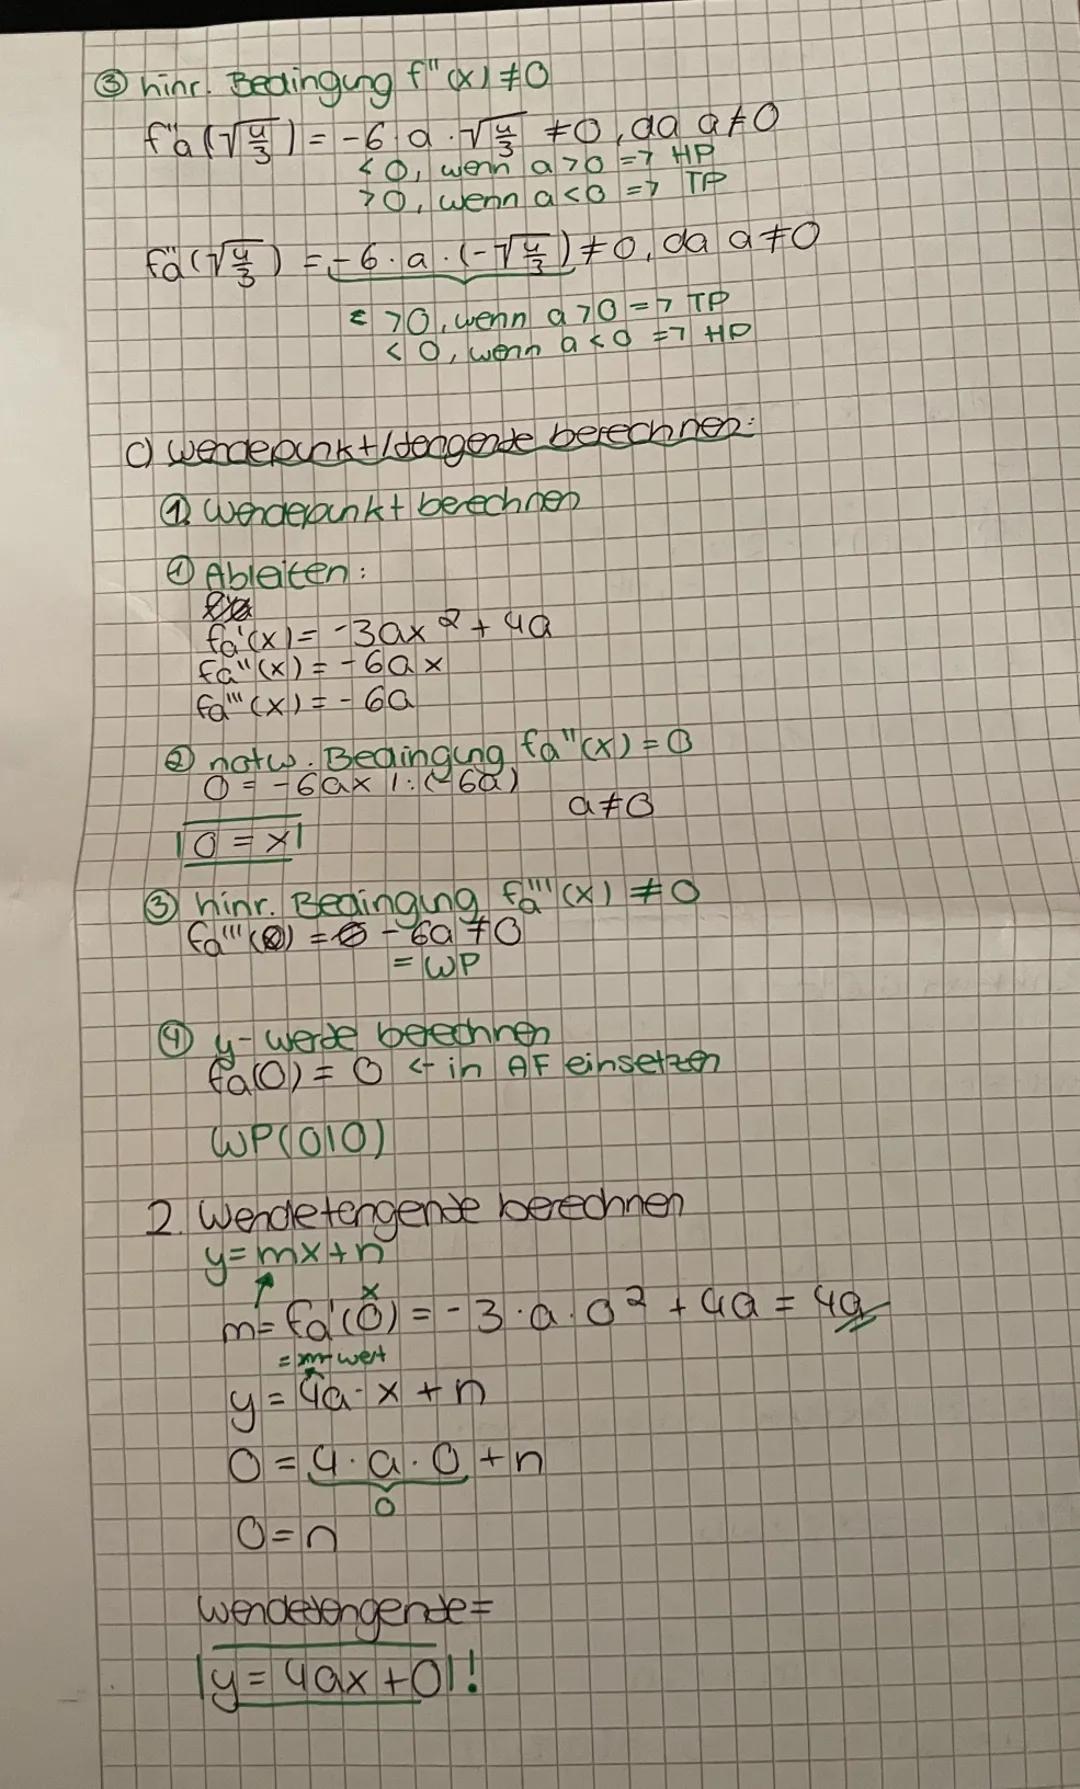 ③ hinr. Bedingung f''(x) ≠ 0
f''a(√4/3) = -6·a·√4/3 ≠ 0, da a ≠ 0
< 0, wenn a > 0 => HP
> 0, wenn a < 0 => TP
fa''(√4/3) = -6·a·(-√4/3) ≠ 0, da a ≠ 0
> 0, wenn a > 0 => TP
< 0, wenn a < 0 => HP
c) Wendepunkt/tengente berechnen:
1. Wendepunkt berechnen
① Ableiten:
fa'(x) = -3ax² + 4a
fa''(x) = -6ax
fa'''(x) = -6a
② notw. Bedingung fa''(x) = 0
0 = -6ax |:(-6a)
a ≠ 0
0 = x
③ hinr. Bedingung fa'''(x) ≠ 0
fa'''(0) = -6a ≠ 0
= WP
④ y-werde berechnen
fa(0) = 0 <- in AF einsetzen
WP(0|0)
2. Wendetengente berechnen
y = mx + n
x
m = fa'(0) = -3·a·0² + 4a = 4a
= m-wert
y = 4a·x + n
0 = 4·a·0 + n
0
0 = n
Wendetengente =
y = 4ax + 0!